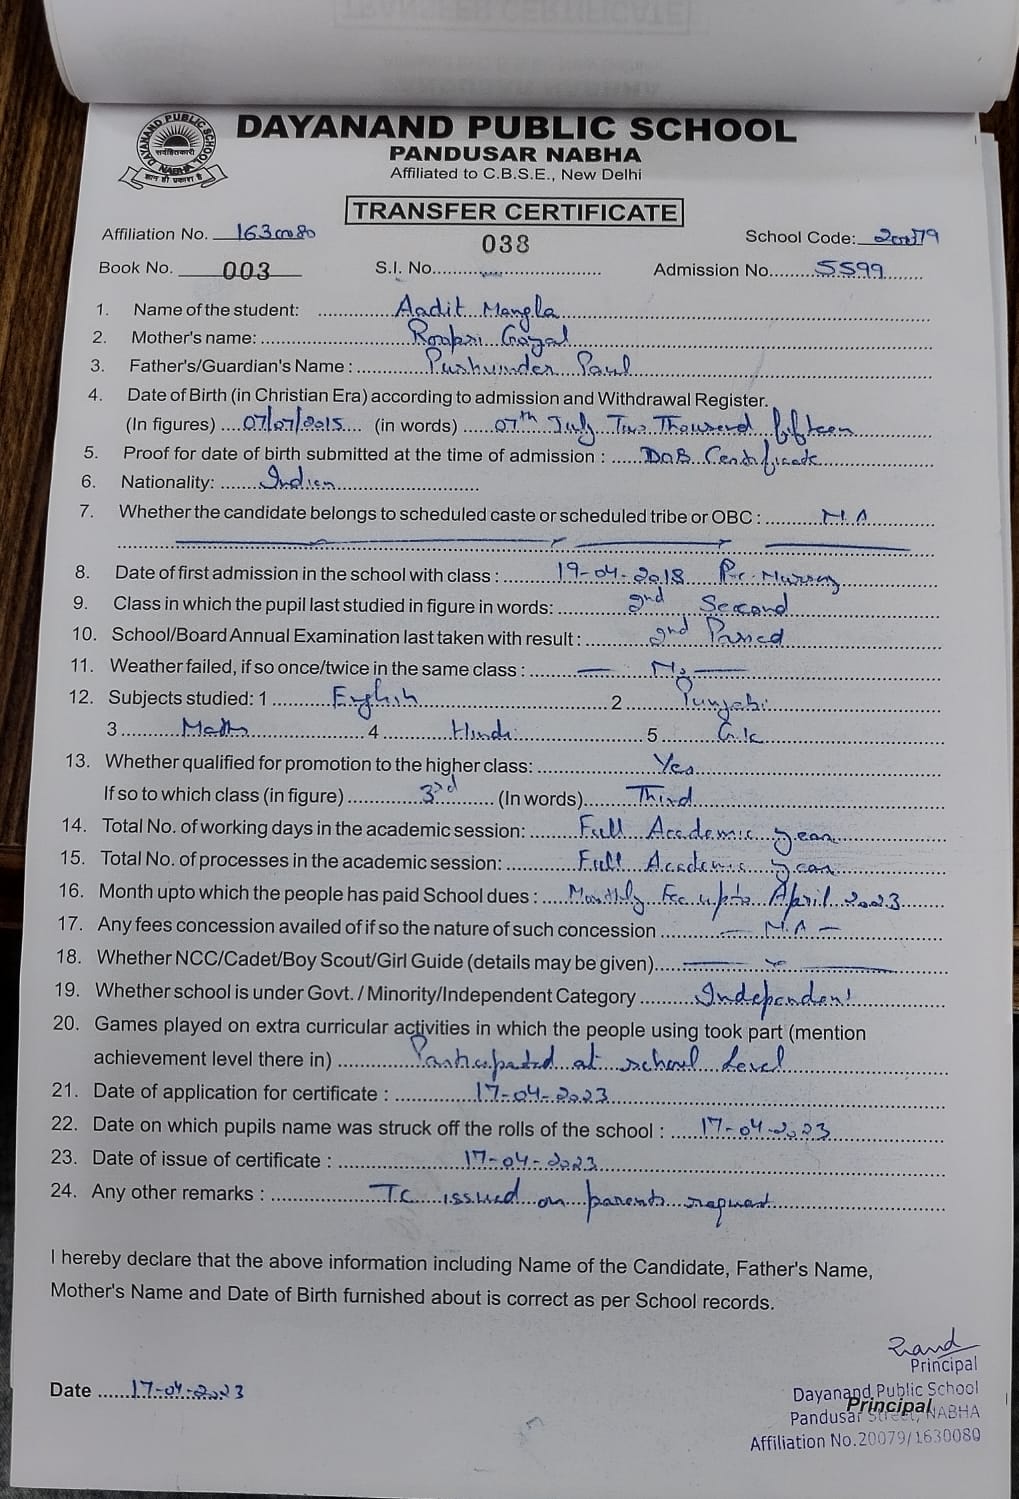 DAYANAND PUBLIC SCHOOL
PANDUSAR NABHA
Affiliated to C.B.S.E., New Delhi
TRANSFER CERTIFICATE
Affiliation No. 1630080 School Code: 20079
038
Book No. 003 S.I. No. Admission No. 5599
1. Name of the student: Aadit Mangla
2. Mother's name: Goyal
3. Father's/Guardian's Name : Pushvinder Paul
4. Date of Birth (in Christian Era) according to admission and Withdrawal Register.
(In figures) 07/07/2015 (in words) 07th July Two Thousand fifteen
5. Proof for date of birth submitted at the time of admission : DOB Certificate
6. Nationality: Indian
7. Whether the candidate belongs to scheduled caste or scheduled tribe or OBC : N.A
8. Date of first admission in the school with class : 19-04-2018 Pre-Nursery
9. Class in which the pupil last studied in figure in words: 2nd Second
10. School/Board Annual Examination last taken with result : 2nd Passed
11. Weather failed, if so once/twice in the same class : — No —
12. Subjects studied: 1 English 2 Punjabi
3 Math 4 Hindi 5 G.k
13. Whether qualified for promotion to the higher class: Yes
If so to which class (in figure) 3rd (In words) Third
14. Total No. of working days in the academic session: Full Academic year
15. Total No. of processes in the academic session: Full Academic year
16. Month upto which the people has paid School dues : Monthly Fee upto April 2023
17. Any fees concession availed of if so the nature of such concession — N.A —
18. Whether NCC/Cadet/Boy Scout/Girl Guide (details may be given)
19. Whether school is under Govt. / Minority/Independent Category Independent
20. Games played on extra curricular activities in which the people using took part (mention
achievement level there in) Participated at school level
21. Date of application for certificate : 17-04-2023
22. Date on which pupils name was struck off the rolls of the school : 17-04-2023
23. Date of issue of certificate : 17-04-2023
24. Any other remarks : TC issued on parents request
I hereby declare that the above information including Name of the Candidate, Father's Name,
Mother's Name and Date of Birth furnished about is correct as per School records.
Principal
Date 17-04-2023
Dayanand Public School
Principal
Pandusar Street, NABHA
Affiliation No.20079/1630080